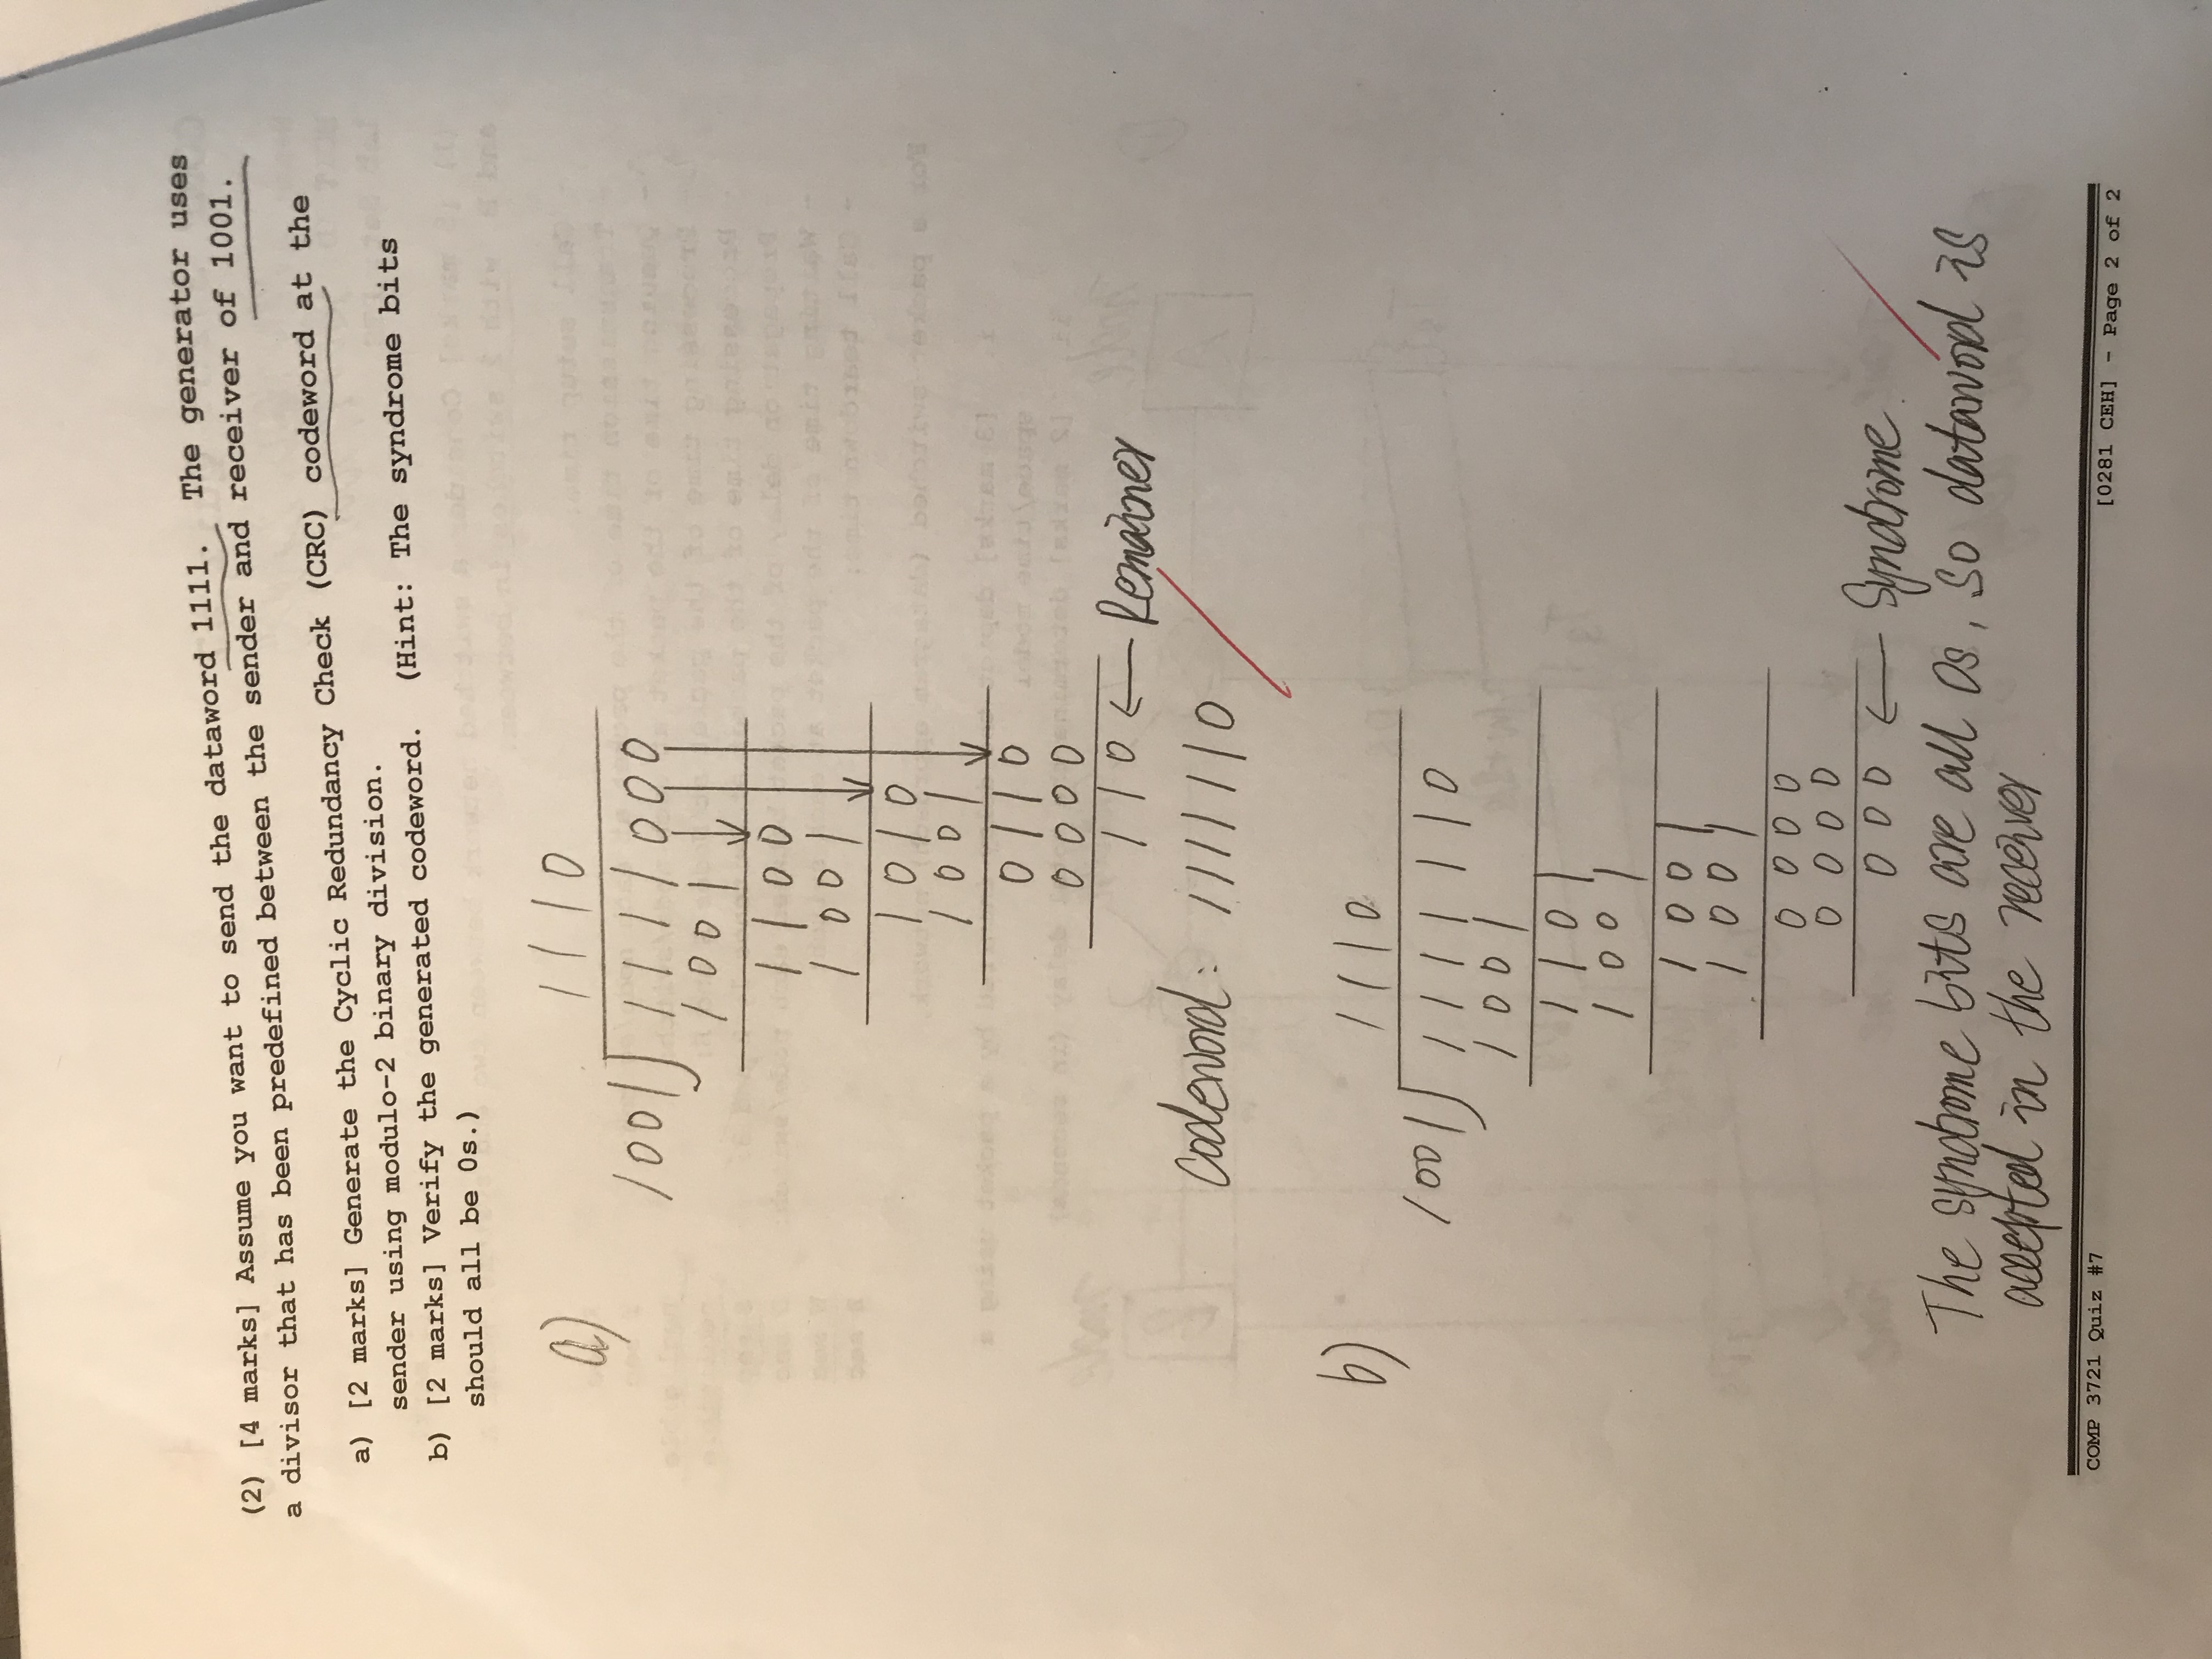 (2) [4 marks] Assume you want to send the dataword 1111. The generator uses
a divisor that has been predefined between the sender and receiver of 1001.
a) [2 marks] Generate the Cyclic Redundancy Check (CRC) codeword at the
sender using modulo-2 binary division.
b) [2 marks] Verify the generated codeword. (Hint: The syndrome bits
should all be 0s.)
a)
1110
1001 1111000
1001
1100
1001
1010
1001
0110
0000
110 ← Remainer
Codeword: 1111110
b)
1110
1001 1111110
1001
1101
1001
1001
1001
0000
0000
000 ← Syndrome
The syndrome bits are all 0s, so dataword is
accepted in the receiver
COMP 3721 Quiz #7
[0281 CEH] - Page 2 of 2